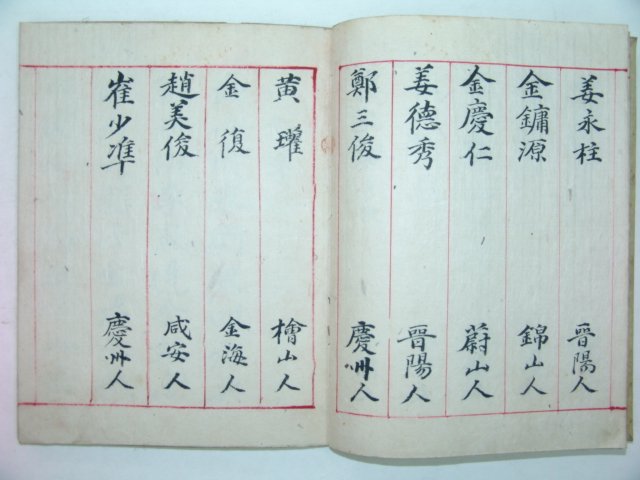 姜永柱 晉陽人
金鏞源 錦山人
金慶仁 蔚山人
姜德秀 晉陽人
鄭三俊 慶州人
黃㻽 檜山人
金復 金海人
趙美俊 咸安人
崔少準 慶州人